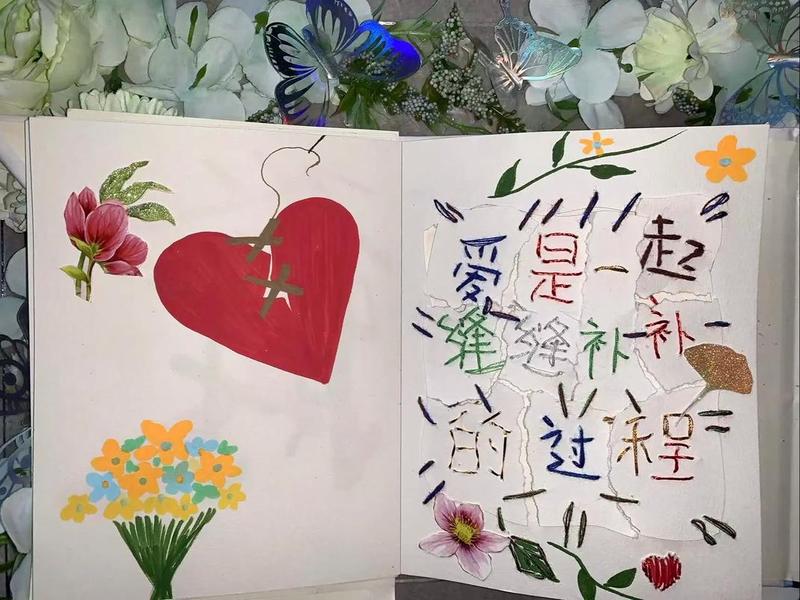 爱是一起
缝缝补补
的过程